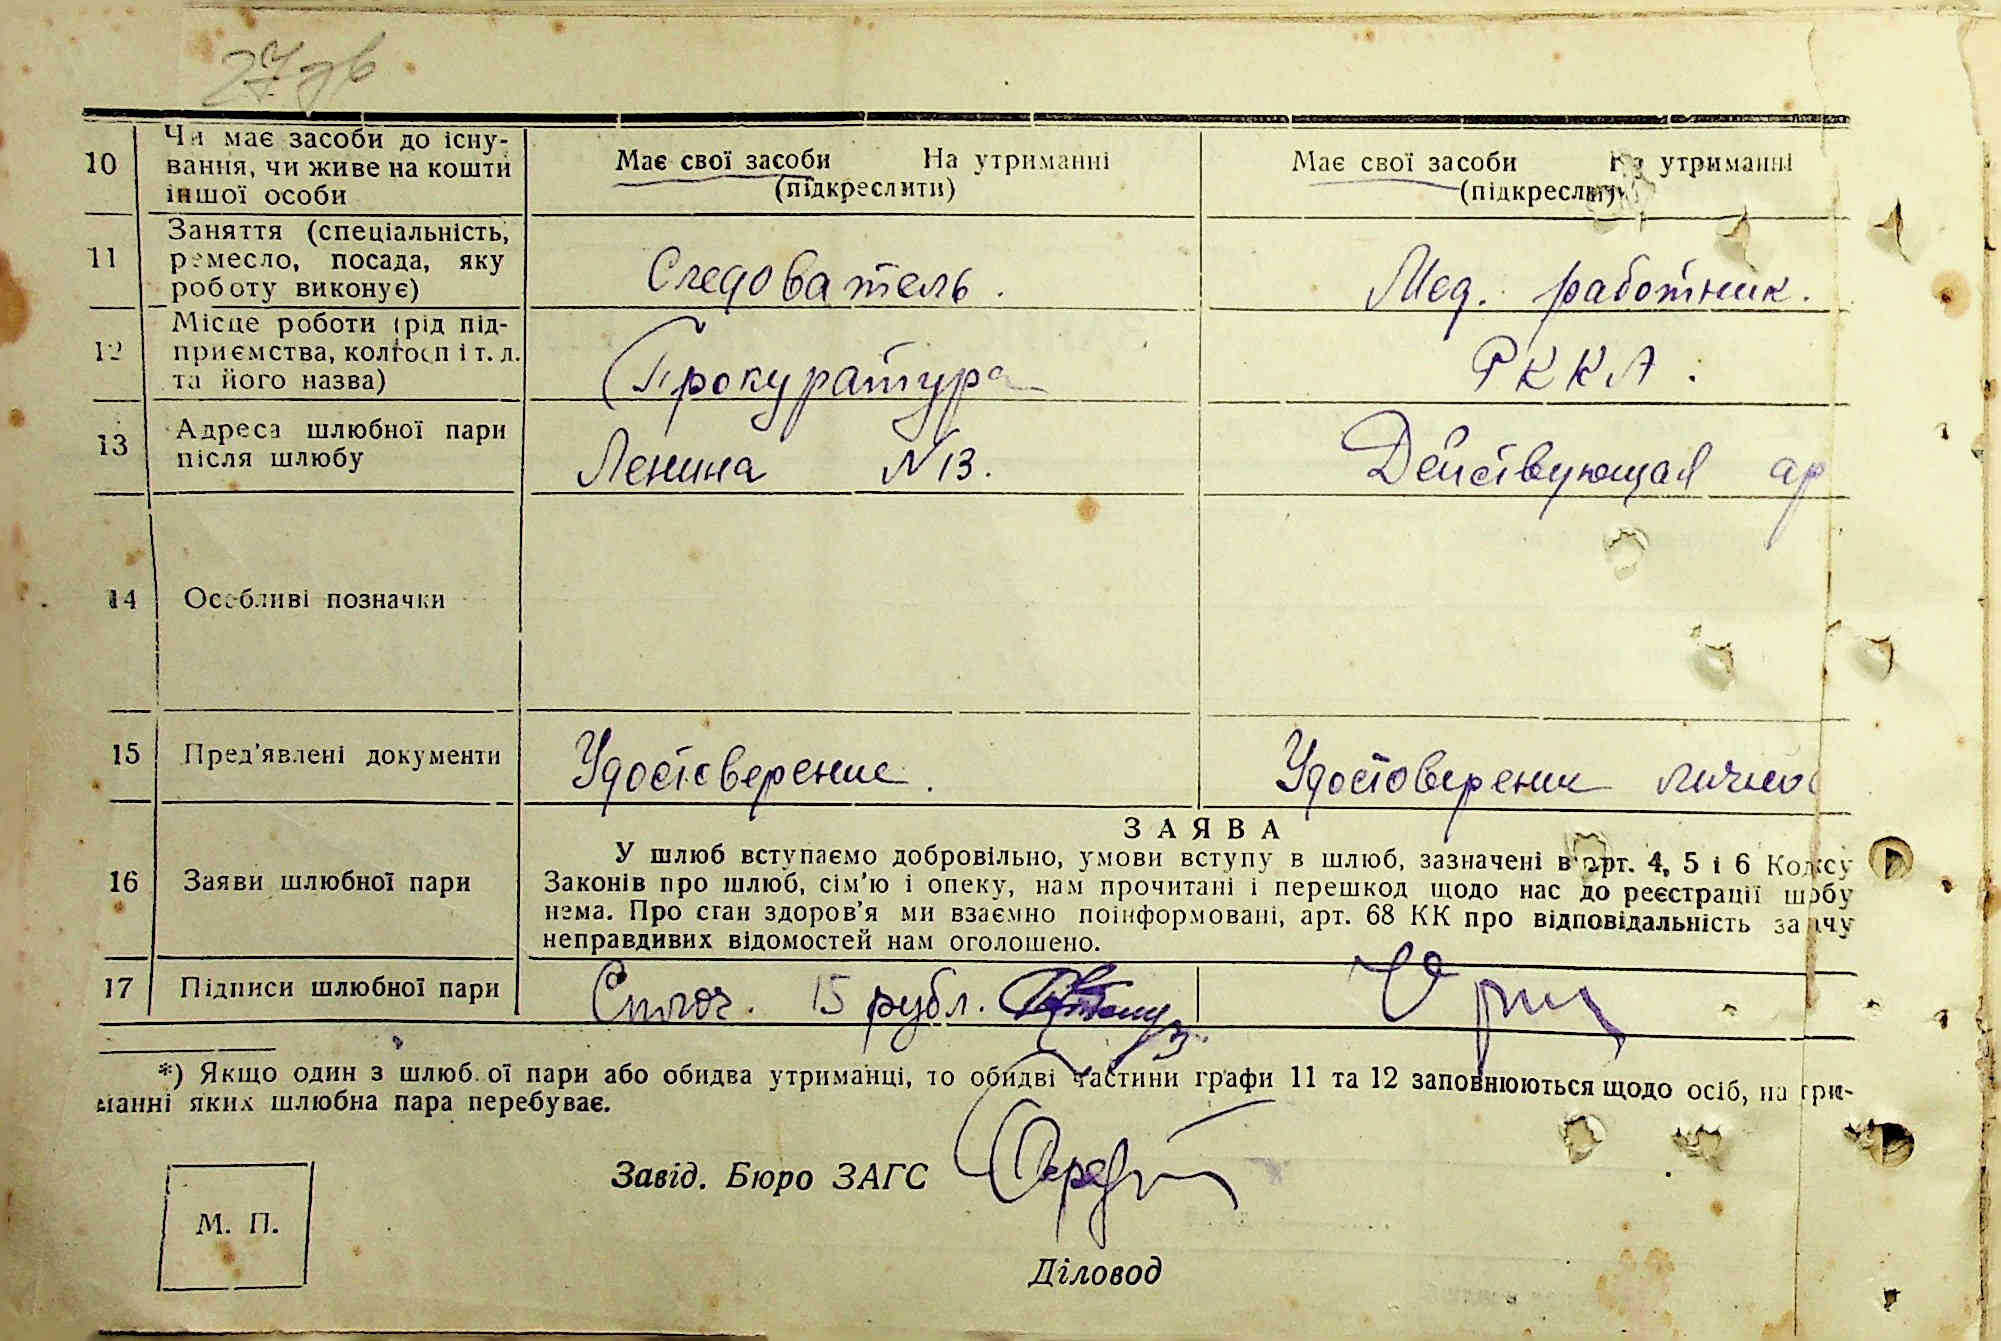 27
10 Чи має засоби до існу-
вання, чи живе на кошти
іншої особи
Має свої засоби На утриманні
(підкреслити)
Має свої засоби На утриманні
(підкреслити)
11 Заняття (спеціальність,
ремесло, посада, яку
роботу виконує)
Следователь.
Мед. работник.
12 Місце роботи (рід під-
приємства, колгосп і т. д.
та його назва)
Прокуратура
РККА.
13 Адреса шлюбної пари
після шлюбу
Ленина №13.
Действующая ар
14 Особливі позначки
15 Пред'явлені документи
Удостоверение.
Удостоверение лично
16 Заяви шлюбної пари
ЗАЯВА
У шлюб вступаємо добровільно, умови вступу в шлюб, зазначені в арт. 4, 5 і 6 Кодксу
Законів про шлюб, сім'ю і опеку, нам прочитані і перешкод щодо нас до реєстрації шбу
нема. Про стан здоров'я ми взаємно поінформовані, арт. 68 КК про відповідальність за ачу
неправдивих відомостей нам оголошено.
17 Підписи шлюбної пари
15 рубл.
*) Якщо один з шлюб. ої пари або обидва утриманці, то обидві частини графи 11 та 12 заповнюються щодо осіб, на три-
манні яких шлюбна пара перебуває.
Завід. Бюро ЗАГС
М. П.
Діловод